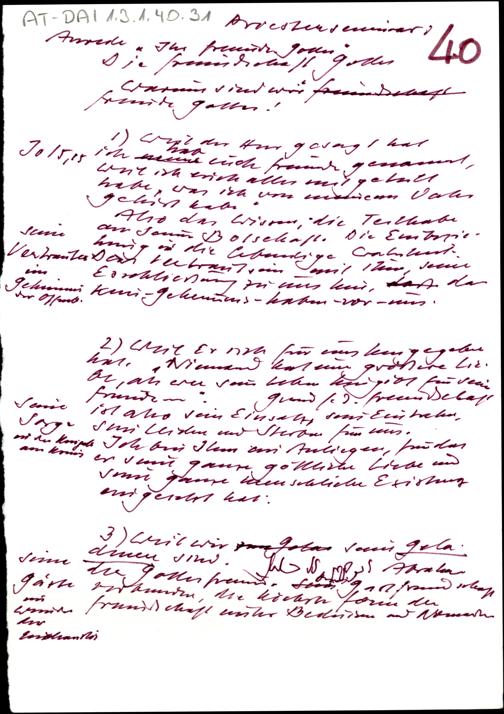 AT-DAI 1.3.1.40.31
Priesterseminar:
40
Anrede „Ihr Freunde Gottes"
Die Freundschaft Gottes
Warum sind wir Freundschaft
Freunde Gottes!
1) Weil der Herr gesagt hat
Jo 15,15 ich habe euch Freunde genannt,
weil ich euch alles mitgeteilt
habe, was ich von meinem Vater
gehört habe.
Also das Wissen, die Teilhabe
an seiner Botschaft. Die Einbezie-
seine hung in die lebendige Wahrheit.
Vertrauten Das Vertrautsein mit Ihm, seine
im Erschließung zu uns hin, das
Geheimnis kein-Geheimnis-haben-vor-uns.
der Offenb.
2) Weil Er sich für uns hingegeben
hat. „Niemand hat eine größere Lie-
be, als wer sein Leben hingibt für seine
Freunde –" Grund f. d. Freundschaft
seine ist also sein Einsatz, sein Eintreten,
Sorge sein Leiden und Sterben für uns.
Ich bin Ihm ein Anliegen, für das
am Kreuz er seine ganze göttliche Liebe und
seine ganze menschliche Existenz
eingesetzt hat.
3) Weil wir seine gela-
denen sind. Abraham
seine der Gottesfreund. Gastfreundschaft
Gäste verbunden, die höchste Form der
Freundschaft unter Beduinen und Nomaden
der
Eucharistie